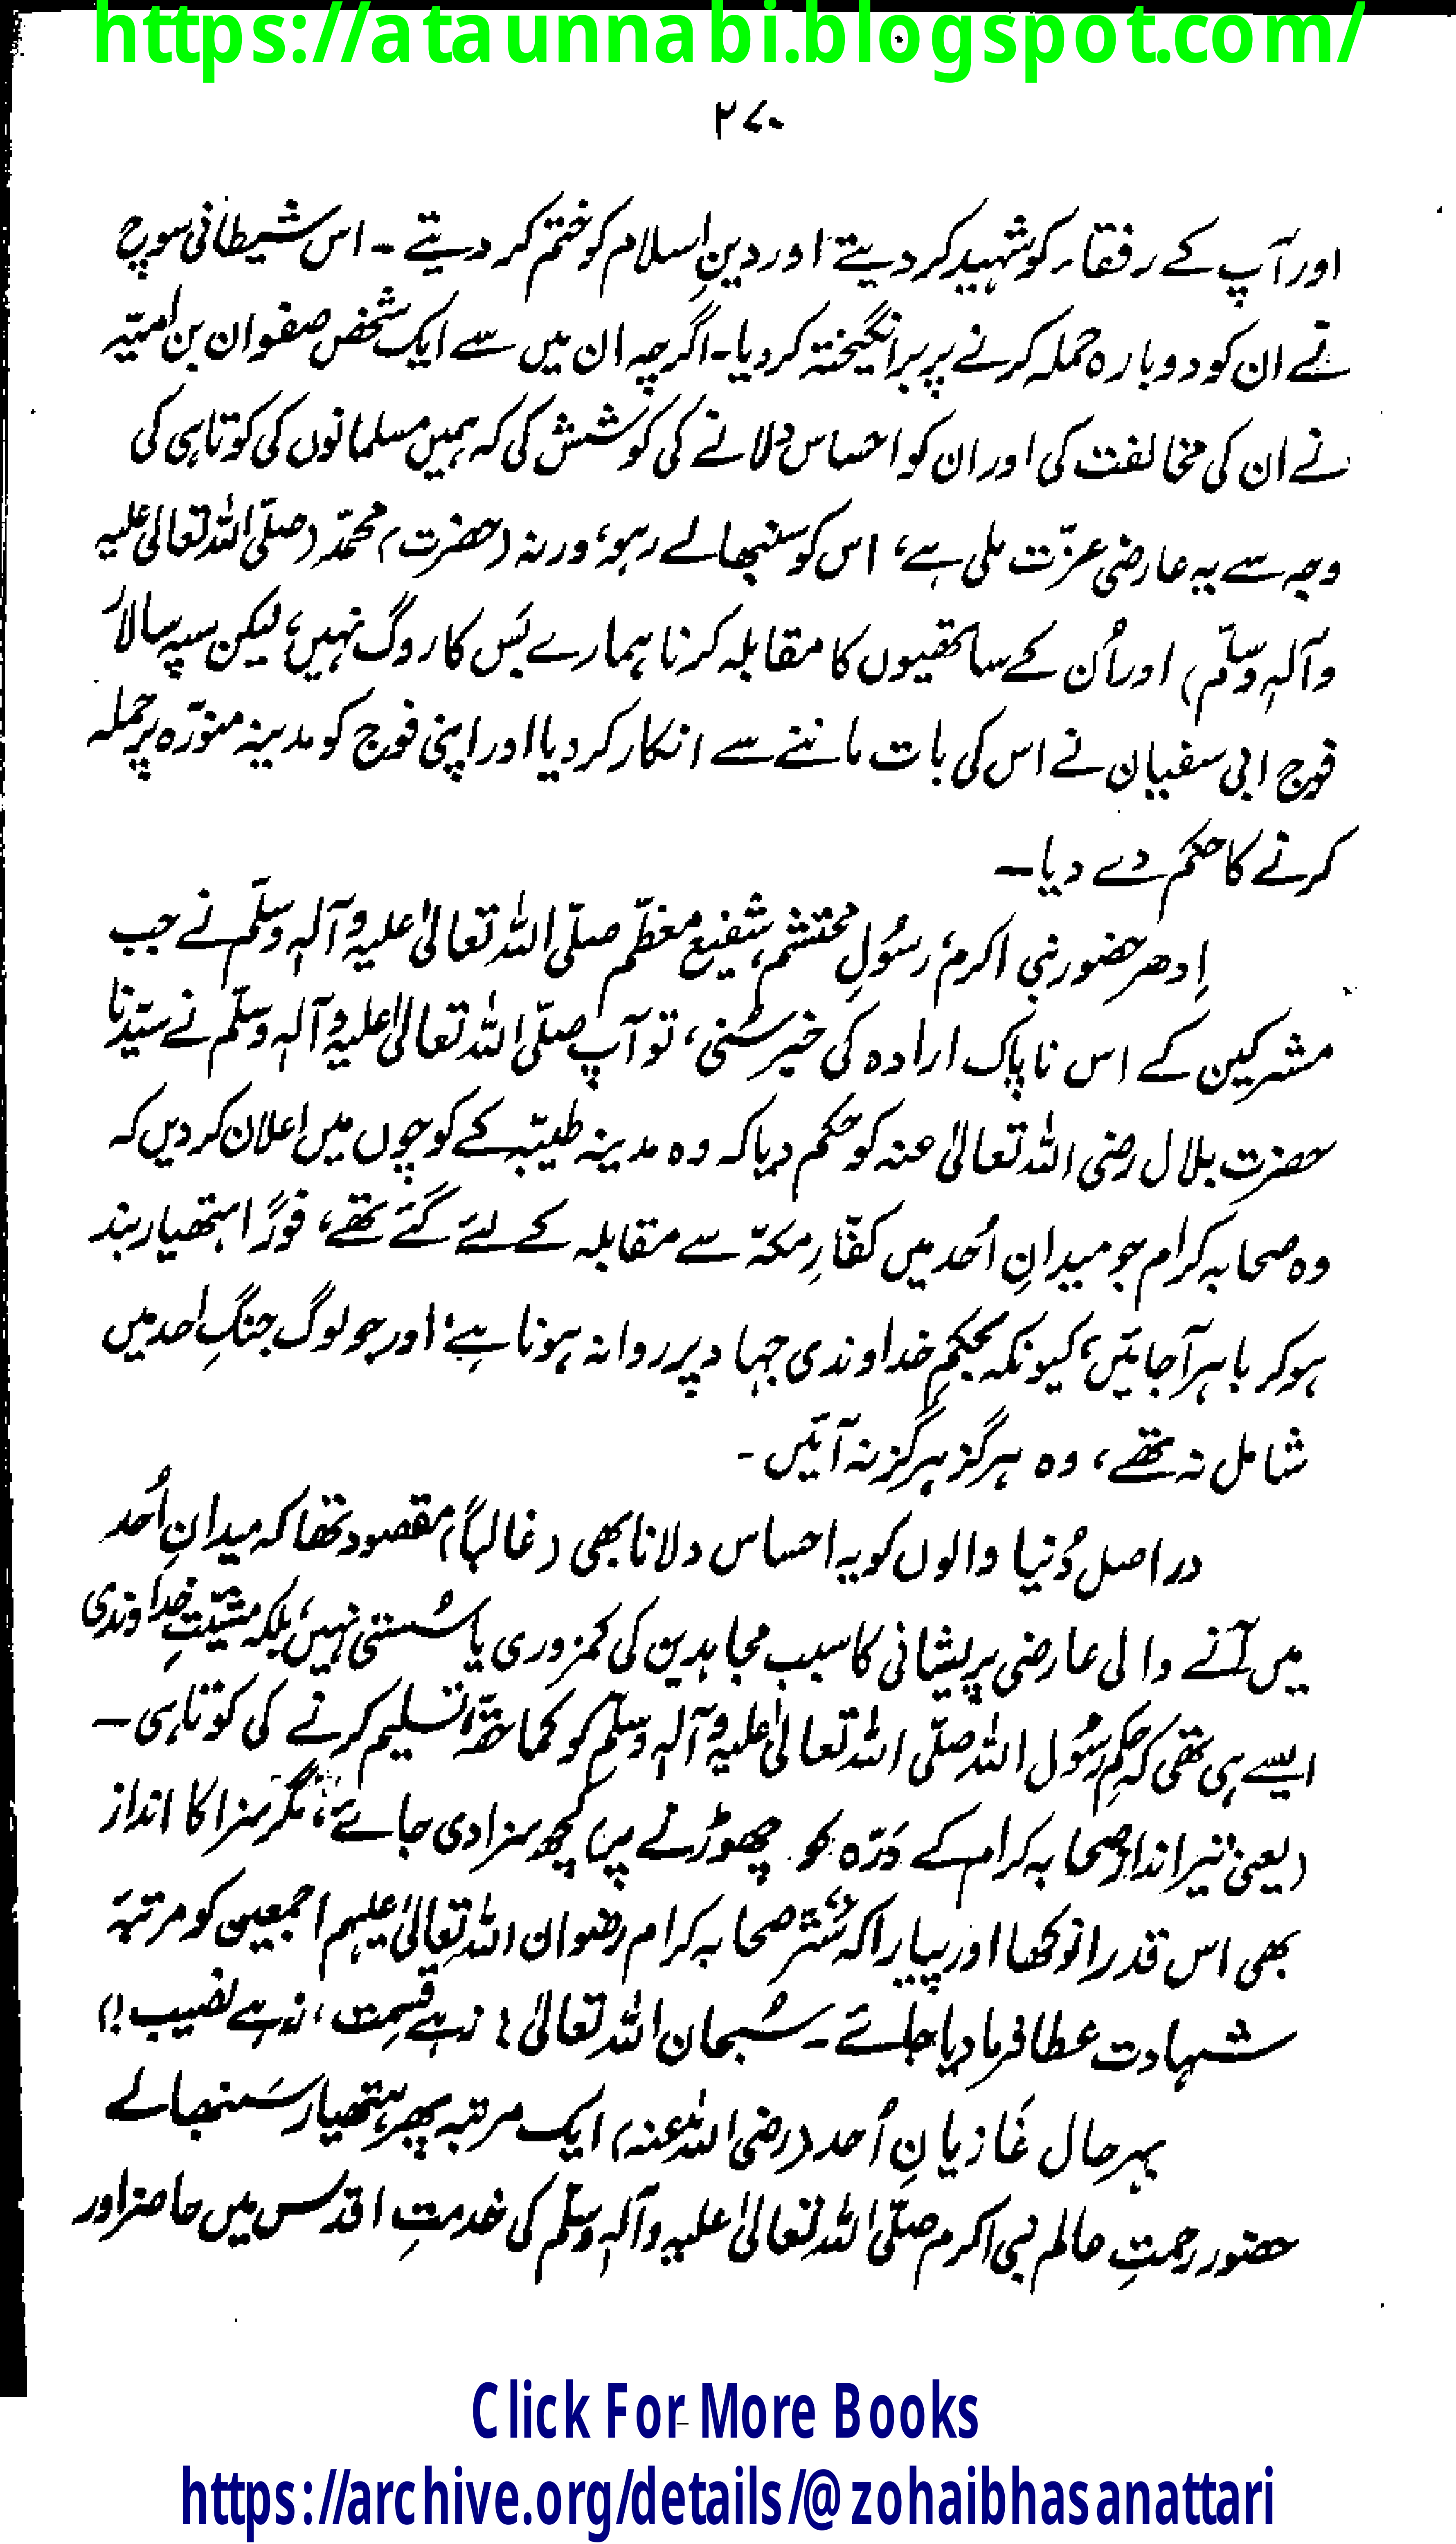 https://ataunnabi.blogspot.com/
۲۷۰
اور آپ کے رفقاء کو شہید کر دیتے اور دینِ اسلام کو ختم کر دیتے ۔ اس شیطانی سوچ
نے ان کو دوبارہ حملہ کرنے پر برانگیختہ کر دیا۔ اگرچہ ان میں سے ایک شخص صفوان بن امیّہ
نے ان کی مخالفت کی اور ان کو احساس دلانے کی کوشش کی کہ ہمیں مسلمانوں کی کوتاہی کی
وجہ سے یہ عارضی عزّت ملی ہے، اس کو سنبھالے رہو، ورنہ (حضرت) محمّد (صلّی اللہ تعالیٰ علیہ
وآلہٖ وسلّم) اور اُن کے ساتھیوں کا مقابلہ کرنا ہمارے بَس کا روگ نہیں، لیکن سپہ سالارِ
فوج ابی سفیان نے اس کی بات ماننے سے انکار کر دیا اور اپنی فوج کو مدینہ منوّرہ پر حملہ
کرنے کا حکم دے دیا۔
اِدھر حضور نبی اکرم، رسُولِ محتشم، شفیعِ معظّم صلّی اللہ تعالیٰ علیہ وآلہٖ وسلّم نے جب
مشرکین کے اس ناپاک ارادہ کی خبر سُنی، تو آپ صلّی اللہ تعالیٰ علیہ وآلہٖ وسلّم نے سیّدنا
حضرت بلال رضی اللہ تعالیٰ عنہ کو حکم دیا کہ وہ مدینہ طیّبہ کے کوچوں میں اعلان کر دیں کہ
وہ صحابہ کرام جو میدانِ اُحد میں کفّارِ مکہّ سے مقابلہ کے لئے گئے تھے، فورًا ہتھیار بند
ہو کر باہر آجائیں، کیونکہ بحکمِ خداوندی جہاد پر روانہ ہونا ہے، اور جو لوگ جنگِ احد میں
شامل نہ تھے، وہ ہرگز ہرگز نہ آئیں ۔
دراصل دُنیا والوں کو یہ احساس دلانا بھی (غالباً) مقصود تھا کہ میدانِ اُحد
میں آنے والی عارضی پریشانی کا سبب مجاہدین کی کمزوری یا سُستی نہیں، بلکہ مشیّتِ خداوندی
ایسے ہی تھی کہ حکمِ رسُول اللہ صلّی اللہ تعالیٰ علیہ وآلہٖ وسلّم کو کما حقّہٗ تسلیم کرنے کی کوتاہی ۔
(یعنی تیر انداز صحابہ کرام کے دَرّہ کو چھوڑنے پر) کچھ سزا دی جائے، مگر سزا کا انداز
بھی اس قدر انوکھا اور پیارا کہ ستّر صحابہ کرام رضوان اللہ تعالیٰ علیہم اجمعین کو مرتبہٴ
شہادت عطا فرما دیا جائے ۔ سُبحان اللہ تعالیٰ! زہے قسمت، زہے نصیب !)
بہرحال غَازیانِ اُحد (رضی اللہ عنہ) ایک مرتبہ پھر ہتھیار سَنبھالے
حضور رحمتِ عالم نبی اکرم صلّی اللہ تعالیٰ علیہ وآلہٖ وسلّم کی خدمتِ اقدس میں حاضر اور
Click For More Books
https://archive.org/details/@zohaibhasanattari